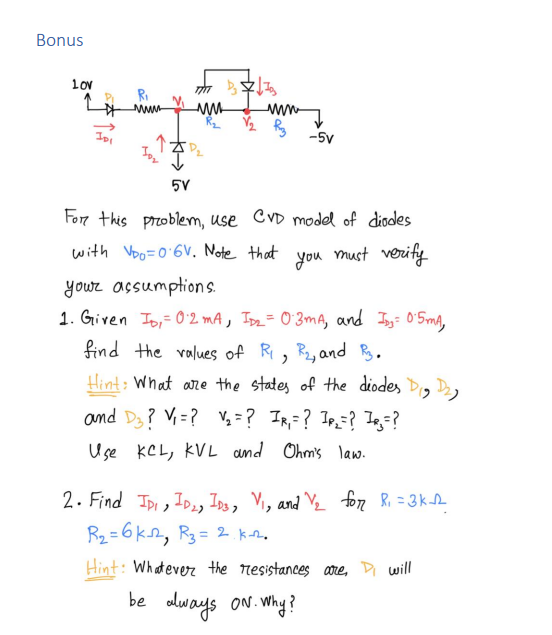 Bonus
10V
D1
R1
V1
R2
D3
ID3
V2
R3
-5V
ID1
ID2
D2
5V
For this problem, use CVD model of diodes
with VD0=0.6V. Note that you must verify
your assumptions.
1. Given ID1= 0.2 mA, ID2= 0.3mA, and ID3= 0.5mA,
find the values of R1, R2, and R3.
Hint: What are the states of the diodes D1, D2,
and D3? V1=? V2=? IR1=? IR2=? IR3=?
Use KCL, KVL and Ohm's law.
2. Find ID1, ID2, ID3, V1, and V2 for R1=3kΩ
R2=6kΩ, R3= 2 kΩ.
Hint: Whatever the resistances are, D1 will
be always ON. Why?